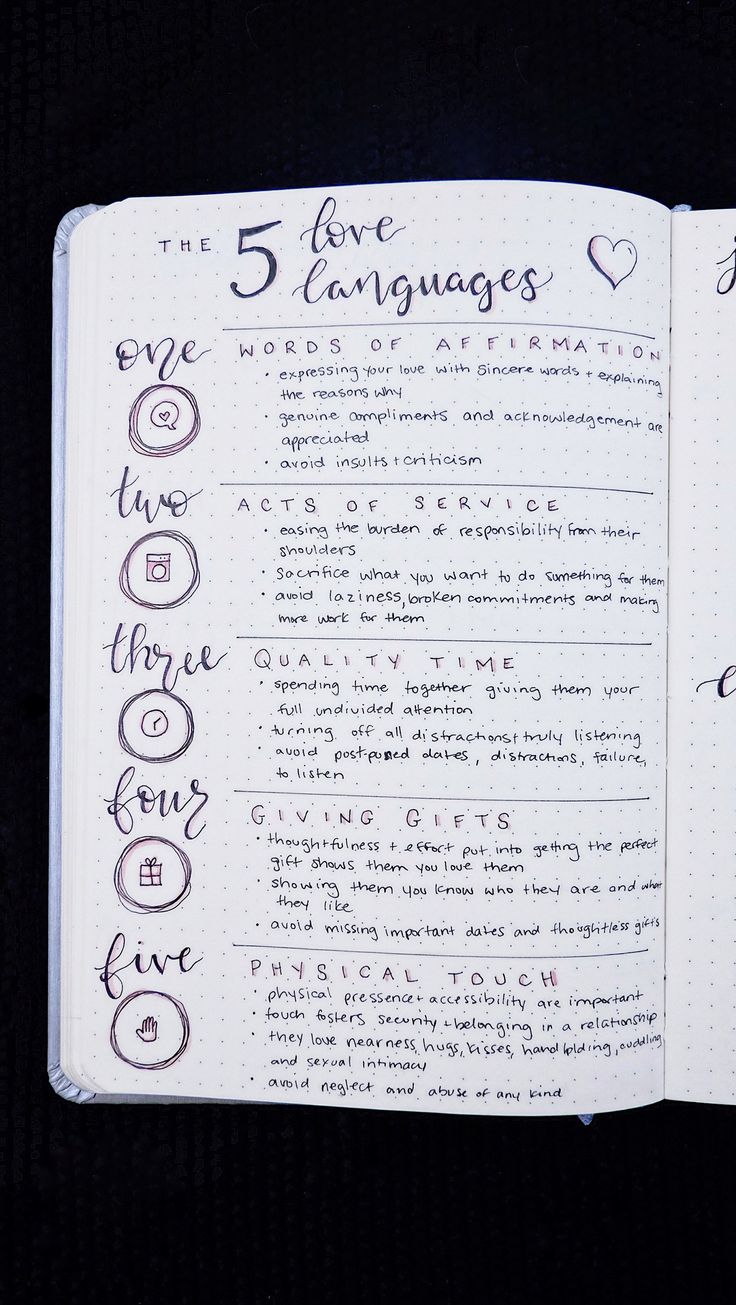 THE 5 love
languages
one WORDS OF AFFIRMATION
• expressing your love with sincere words + explaining
the reasons why
• genuine compliments and acknowledgement are
appreciated
• avoid insults + criticism
two ACTS OF SERVICE
• easing the burden of responsibility from their
shoulders
• Sacrifice what you want to do something for them
• avoid laziness, broken commitments and making
more work for them
three QUALITY TIME
• spending time together giving them your
full undivided attention
• turning off all distractions + truly listening
• avoid post-poned dates, distractions, failure,
to listen
four GIVING GIFTS
• thoughtfulness + effort put into getting the perfect
gift shows them you love them
• showing them you know who they are and what
they like
• avoid missing important dates and thoughtless gifts
five PHYSICAL TOUCH
• physical pressence + accessibility are important
• touch fosters security + belonging in a relationship
• they love nearness, hugs, kisses, hand holding, cuddling
and sexual intimacy
• avoid neglect and abuse of any kind